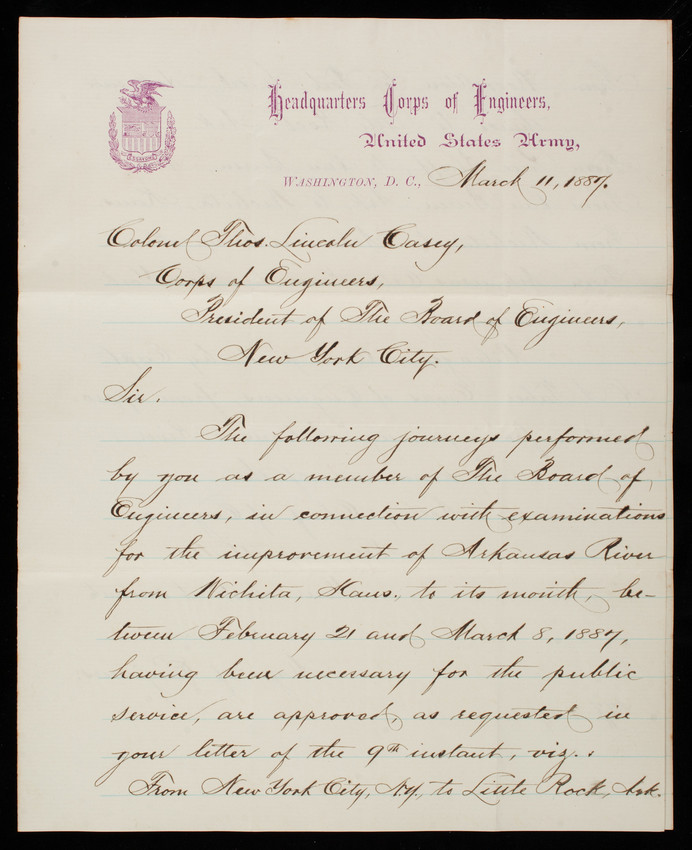 Headquarters Corps of Engineers,
United States Army,
WASHINGTON, D. C., March 11, 1887.
Colonel Thos. Lincoln Casey,
Corps of Engineers,
President of The Board of Engineers,
New York City.
Sir.
The following journeys performed
by you as a member of The Board of
Engineers, in connection with examinations
for the improvement of Arkansas River
from Wichita, Kans., to its mouth, be-
tween February 21 and March 8, 1887,
having been necessary for the public
service, are approved, as requested in
your letter of the 9th instant, viz.:
From New York City, N.Y., to Little Rock, Ark.